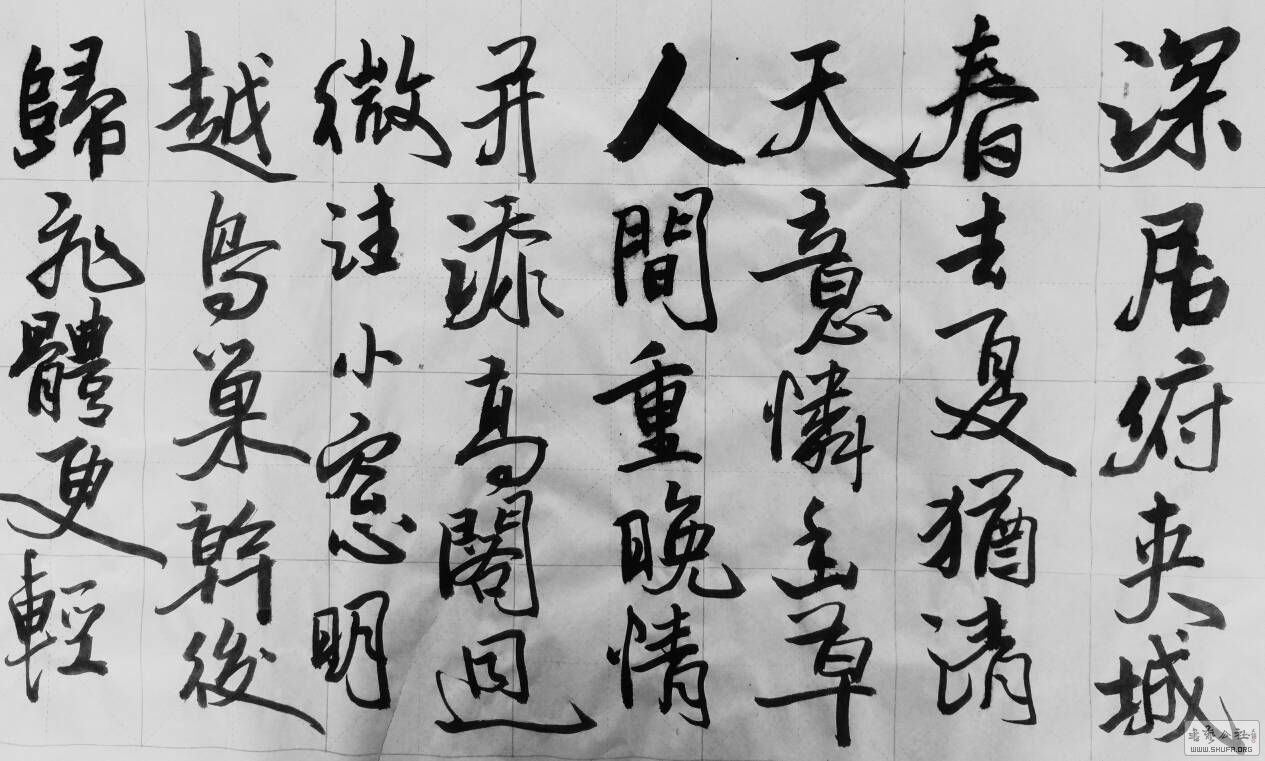 深居俯夾城
春去夏猶清
天意憐幽草
人間重晚情
并添高閣迥
微注小窓明
越鳥巢幹後
歸飛體更輕
WWW.SHUFA.ORG